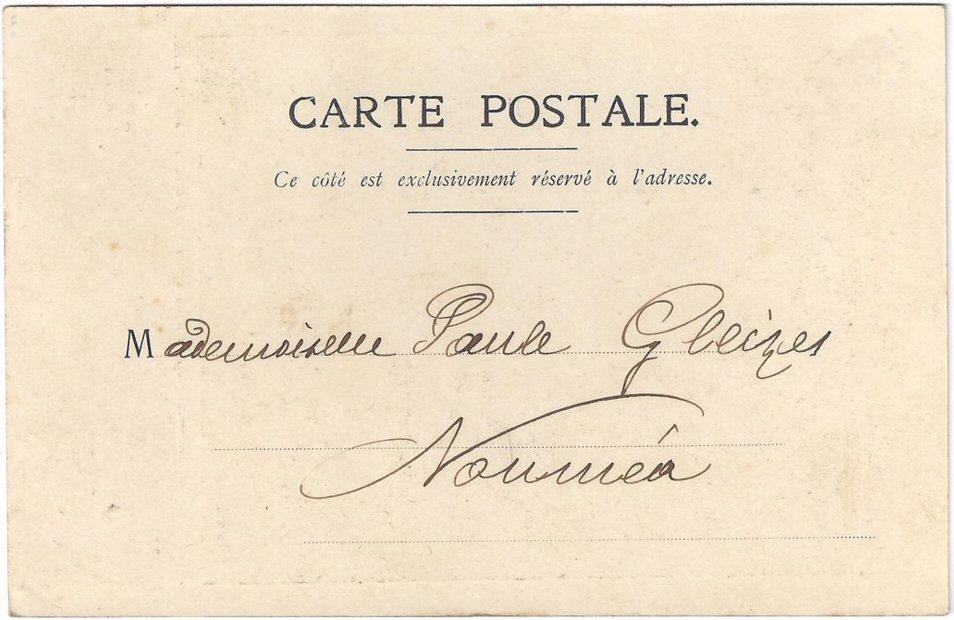 CARTE POSTALE.
Ce côté est exclusivement réservé à l'adresse.
Mademoiselle Paule Gleizes
Nouméa